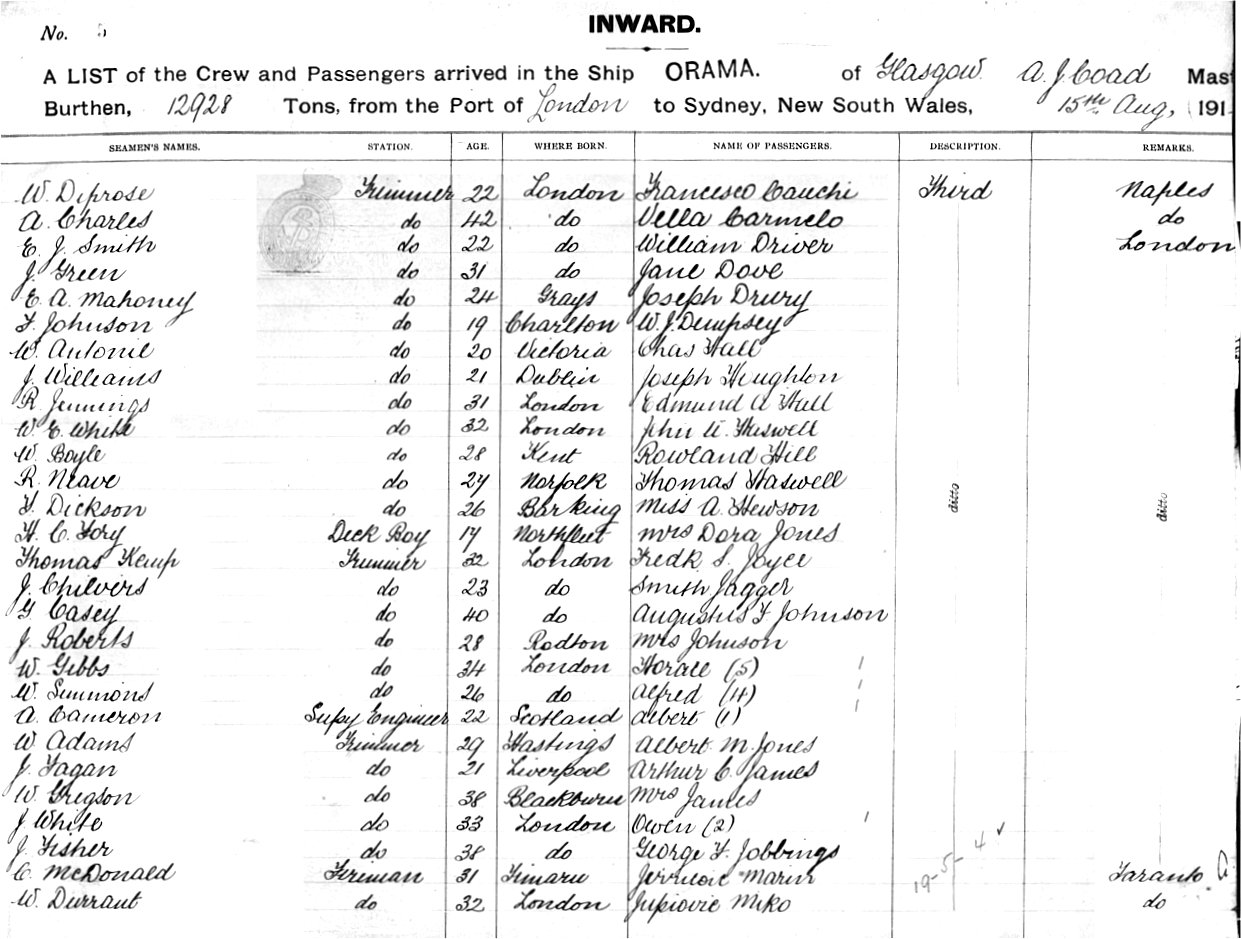 No. 5
INWARD.
A LIST of the Crew and Passengers arrived in the Ship ORAMA. of Glasgow A. J. Coad Mast
Burthen, 12928 Tons, from the Port of London to Sydney, New South Wales, 15th Aug, 191
SEAMEN'S NAMES. STATION. AGE. WHERE BORN. NAME OF PASSENGERS. DESCRIPTION. REMARKS.
W. Diprose Trimmer 22 London Francesco Cauchi Third Naples
A. Charles do 42 do Vella Carmelo do
E. J. Smith do 22 do William Driver London
J. Green do 31 do Jane Dove
E. A. Mahoney do 24 Grays Joseph Drury
F. Johnson do 19 Charlton W. J. Dempsey
W. Antonie do 20 Victoria Chas Hall
J. Williams do 21 Dublin Joseph Houghton
R. Jennings do 31 London Edmund A Hull
W. E. White do 32 London John W. Haswell
W. Boyle do 28 Kent Rowland Hill
R. Neave do 27 Norfolk Thomas Haswell
F. Dickson do 26 Barking Miss A. Hewson ditto ditto
H. C. Fory Deck Boy 17 Northfleet Mrs Dora Jones
Thomas Kemp Trimmer 32 London Fredk S. Joyce
J. Chilvers do 23 do Smith Jagger
G. Casey do 40 do Augustus F Johnson
J. Roberts do 28 Rodton Mrs Johnson
W. Gibbs do 34 London Horace (5)
W. Simmons do 26 do Alfred (4)
A. Cameron Supy Engineer 22 Scotland Albert (1)
W. Adams Trimmer 29 Hastings Albert M. Jones
J. Fagan do 21 Liverpool Arthur C. James
W. Gregson do 38 Blackburn Mrs James
J. White do 33 London Owen (2)
J. Fisher do 38 do George F. Jobbings
C. McDonald Fireman 31 Timaru Marin 19-5-4 Taranto
W. Durrant do 32 London Miko do